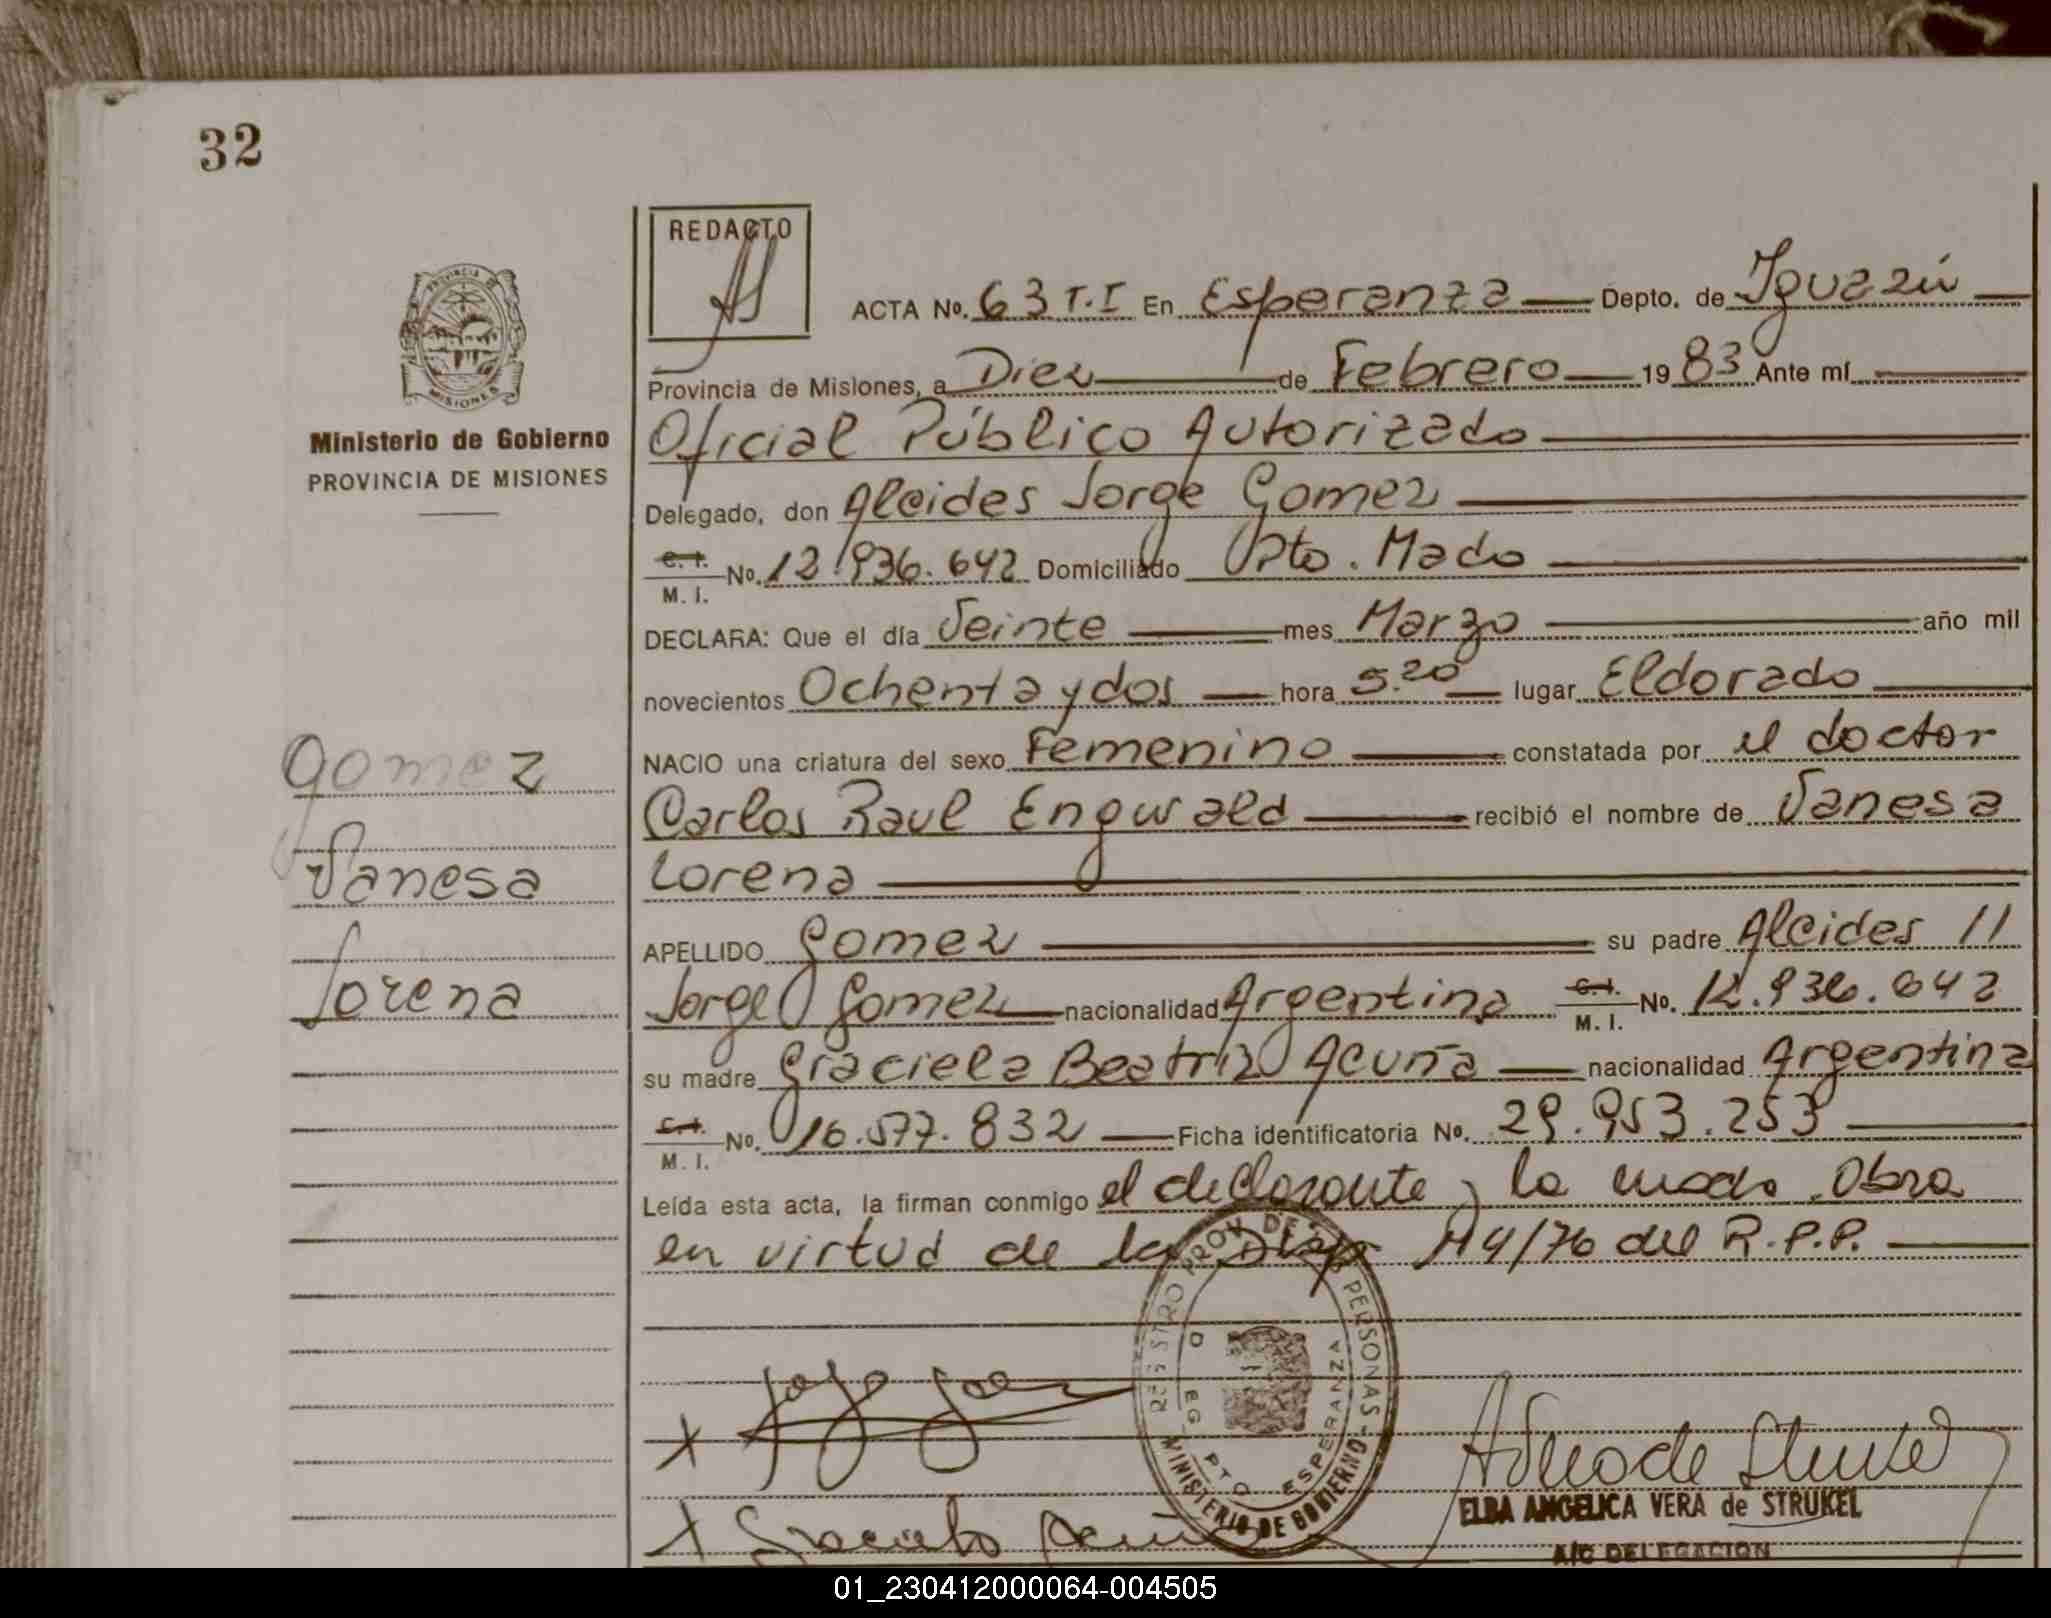 32
REDACTO
ACTA No. 63 T.I En Esperanza Depto. de Iguazú
Provincia de Misiones, a Diez de Febrero 1983 Ante mí
Oficial Público Autorizado
Delegado, don Alcides Jorge Gomez
C.I. M.I. No. 12.936.642 Domiciliado Pto. Mado
DECLARA: Que el día Veinte mes Marzo año mil
novecientos Ochenta y dos hora 5.20 lugar Eldorado
NACIO una criatura del sexo Femenino constatada por el doctor
Carlos Raul Engwald recibió el nombre de Vanesa
Lorena
APELLIDO Gomez su padre Alcides //
Jorge Gomez nacionalidad Argentina C.I. M.I. No. 12.936.642
su madre Graciela Beatriz Acuña nacionalidad Argentina
C.I. M.I. No. 16.577.832 Ficha identificatoria No. 29.953.253
Leída esta acta, la firman conmigo el declarante y la madre. Obra
en virtud de la Disp 114/76 del R.P.P.
PROVINCIA DE
MISIONES
Ministerio de Gobierno
PROVINCIA DE MISIONES
Gomez
Vanesa
Lorena
REGISTRO PROV. DE LAS PERSONAS
MINISTERIO DE GOBIERNO
PTO ESPERANZA
X
X Graciela Acuña
ELBA ANGELICA VERA de STRUKEL
A/C DELEGACION
01_230412000064-004505